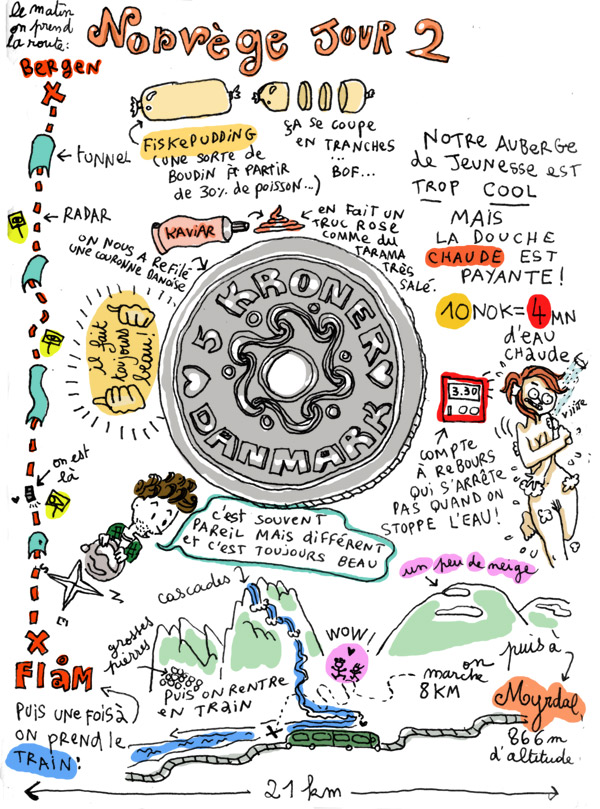 le matin
on prend
la route:
NORVÈGE JOUR 2
BERGEN
← tunnel
← RADAR
on est
là
FLÅM
PUIS UNE FOIS À
on prend le
TRAIN:
FISKEPUDDING
(UNE SORTE DE
BOUDIN À PARTIR
de 30% de poisson...)
ÇA SE COUPE
EN TRANCHES
...
BOF...
KAVIAR
EN FAIT UN
TRUC ROSE
COMME DU
TARAMA
TRÈS
SALÉ.
ON NOUS A REFILÉ
UNE COURONNE DANOISE
il fait
toujours
beau!
5 KRONER
DANMARK
NOTRE AUBERGE
de JEUNESSE EST
TROP COOL
MAIS
LA DOUCHE
CHAUDE EST
PAYANTE!
10 NOK = 4 MN
d'EAU
CHAUDE
3.30
viiite
COMPTE
À REBOURS
QUI S'ARRÊTE
PAS QUAND ON
STOPPE L'EAU!
c'est SOUVENT
PAREIL MAIS différent
et c'EST TOUJOURS BEAU
cascades
un peu de neige
grosses
pierres
WOW!
PUIS ON RENTRE
EN TRAIN
on
marche
8 KM
puis à
Myrdal
866 m
d'altitude
21 km